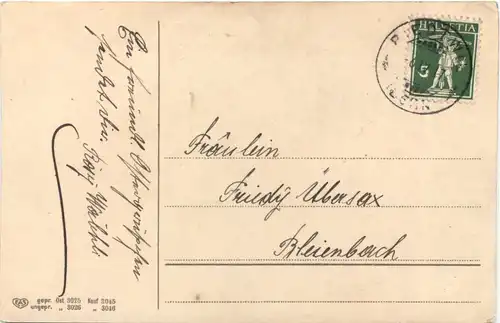 Ein freundl. Ostergrüßchen
sendet dir.
Rosy Wälchli
Fräulein
Friedy Übersax
Bleienbach
HELVETIA
5
EAS
gepr. Ost 3025 Neuf 3045
ungepr. „ 3026 „ 3046